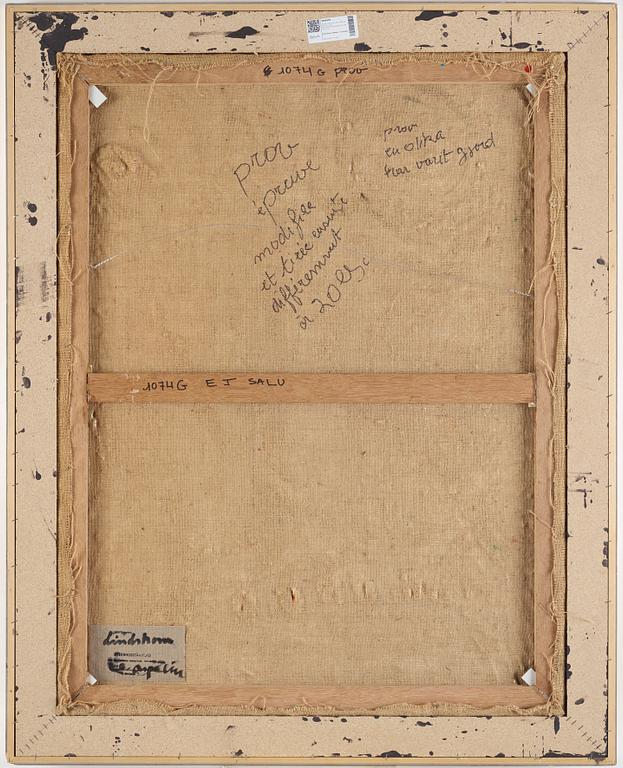 1074G prov
prov
épreuve
modifiée
et tirée ensuite
différemment
à 20 ex.
prov
en olika
har varit gjord
1074G EJ SALU
Lindstrom